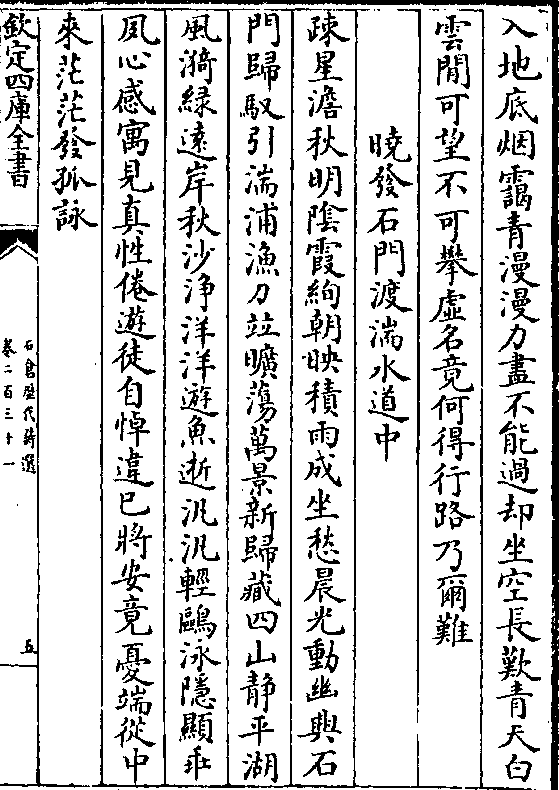 入地底烟靄青漫漫力盡不能過却坐空長歎青天白
雲閒可望不可攀虛名竟何得行路乃爾難
曉發石門渡湍水道中
疎星澹秋明隂霞絢朝映積雨成坐愁晨光動幽興石
門歸馭引湍浦漁刀竝曠蕩萬景新歸藏四山静平湖
風漪綠遠岸秋沙浄洋洋遊魚逝汎汎輕鷗泳隱顯乖
夙心感寓見真性倦遊徒自悼違已將安竟憂端從中
來茫茫發孤詠
欽定四庫全書
石倉歷代詩選
卷二百三十一
五